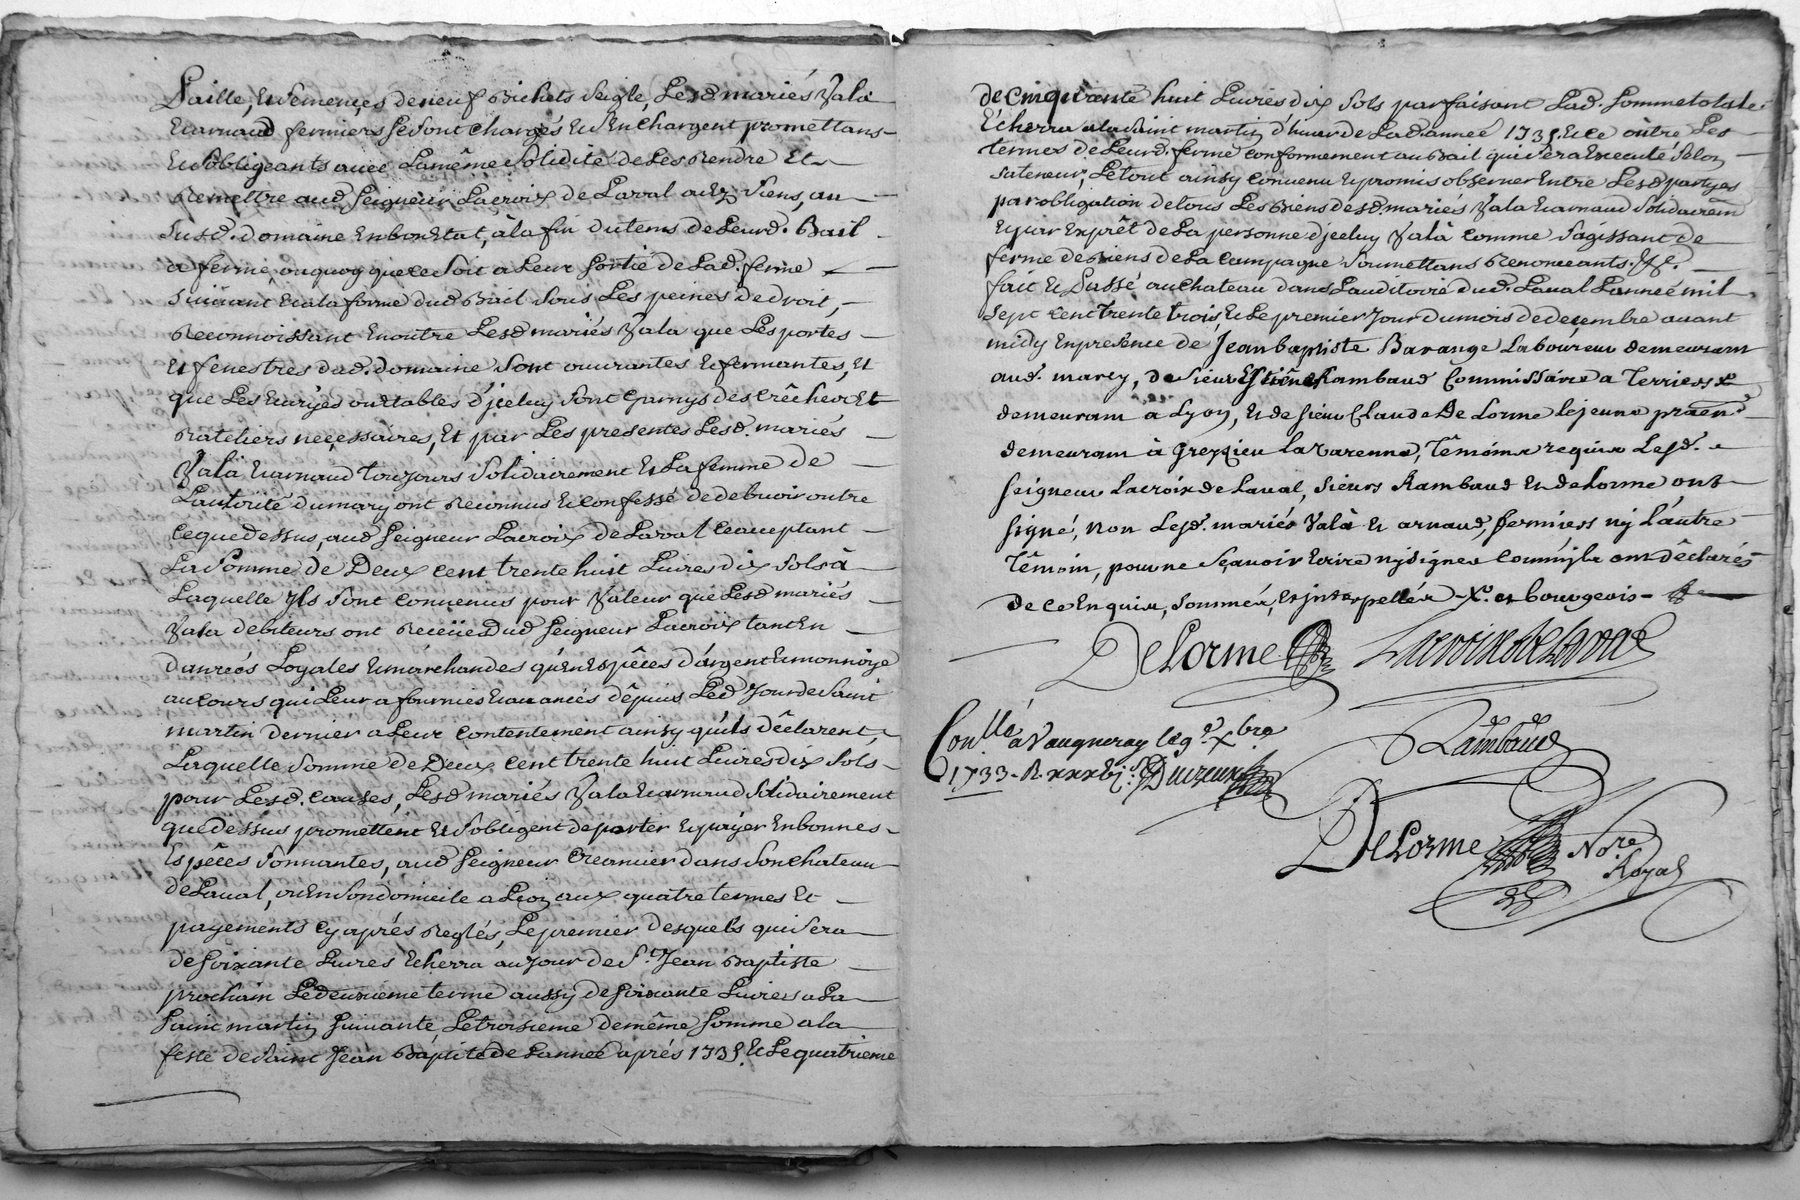 Paille, et Semences de neuf Bichets Seigle, Lesd mariés Valà
et arnaud fermiers Se Sont chargés et S'en chargent promettans
et S'obligeants avec La même Solidité de Les Rendre et
Remettre aud Seigneur Lacroix de Laval à Ez Siens, au
Susd. domaine en bon Etat, à la fin du tems de Leurd. Bail
a ferme, ou quoy que ce Soit a Leur Sortie de Lad. ferme
Suivant et a la forme dud Bail Sous Les peines de droit,
Reconnoissant en outre Lesd mariés Vala que Les portes
et fenestres dud. domaine Sont ouvrantes et fermantes, et
que Les Ecuryes ou Etables d'jceluy Sont Garnys des Crêches et
Rateliers neçessaires, Et par Les presentes Lesd. mariés
Valà et arnaud toujours Solidairement et La femme de
L'autorité du mary ont Reconnus et confessé de debvoir outre
ce que dessus, aud Seigneur Lacroix de Laval ce acceptant
La Somme de Deux cent trente huit Livres dix Sols à
Laquelle Jls Sont convenus pour Valeur que Lesd mariés
Vala debiteurs ont Reçeües dud Seigneur Lacroix tant En
danreés Loyales et marchandes qu'en Espêces d'argent et monnoye
au cours qui Leur a fournies et avancés dêpuis Led Jour de Saint
martin dernier a Leur contentement ainsy qu'ils dêclarent,
Laquelle Somme de Deux cent trente huit Livres dix Sols
pour Lesd. causes, Lesd mariés Vala et arnaud Solidairement
que dessus promettent et S'obligent de porter et payer En bonnes
Espêces Sonnantes, aud Seigneur Creancier dans Son chateau
de Laval, ou En Son domicile a Lion aux quatre termes et
payements cy aprés Reglés, Le premier desquels qui Sera
de Soixante Livres Echerra au jour de St. Jean Baptiste
prochain Le deuxieme terme aussy de Soixante Livres a La
Saint martin Suivante, Le troisieme de même Somme a la
feste de Saint Jean Baptiste de L'anneé aprés 1735. et Le quatrieme
de Cinquante huit Livres dix Sols parfaisant Lad. Somme totale
Echerra a la Saint martin d'hiver de Lad anneé 1735. et ce oûtre Les
termes de Leurd. ferme conformement au Bail qui Sera Executé Selon
Sa teneur, Le tout ainsy convenu et promis observer Entre Lesd partyes
par obligation de tous Les Biens desd. mariés Vala et arnaud Solidairemt
et par Exprêt de La personne d'jceluy Valà comme S'agissant de
ferme de Biens de La campagne Soumettans Renonceants. &c.
fait et Passé au chateau dans L'auditoire dud. Laval L'anneé mil
Sept cent trente trois, et Le premier Jour du mois de decembre avant
midy En presence de Jean baptiste Barange Laboureur demeurant
aud. marcy, de Sieur Estiêne Rambaud Commissaire a Terriers
demeurant a Lyon, et de Sieur Claude De Lorme le jeune praend
demeurant à Grezieu La Varenne, Têmoins requis Lesd.
Seigneur Lacroix de Laval, Sieurs Rambaud et de Lorme ont
Signé, non Lesd. mariés Valà et arnaud, fermiers ny L'autre
Têmoin, pour ne Sçavoir Ecrire ny Signer comm'jls ont dêclarés
de ce Enquis, Sommés, et jnterpellés
DeLorme Lacroix de Laval
Conllé a Vaugneray le 9e. Xbre
1733
Rambaud
DeLorme Nore.
Royal